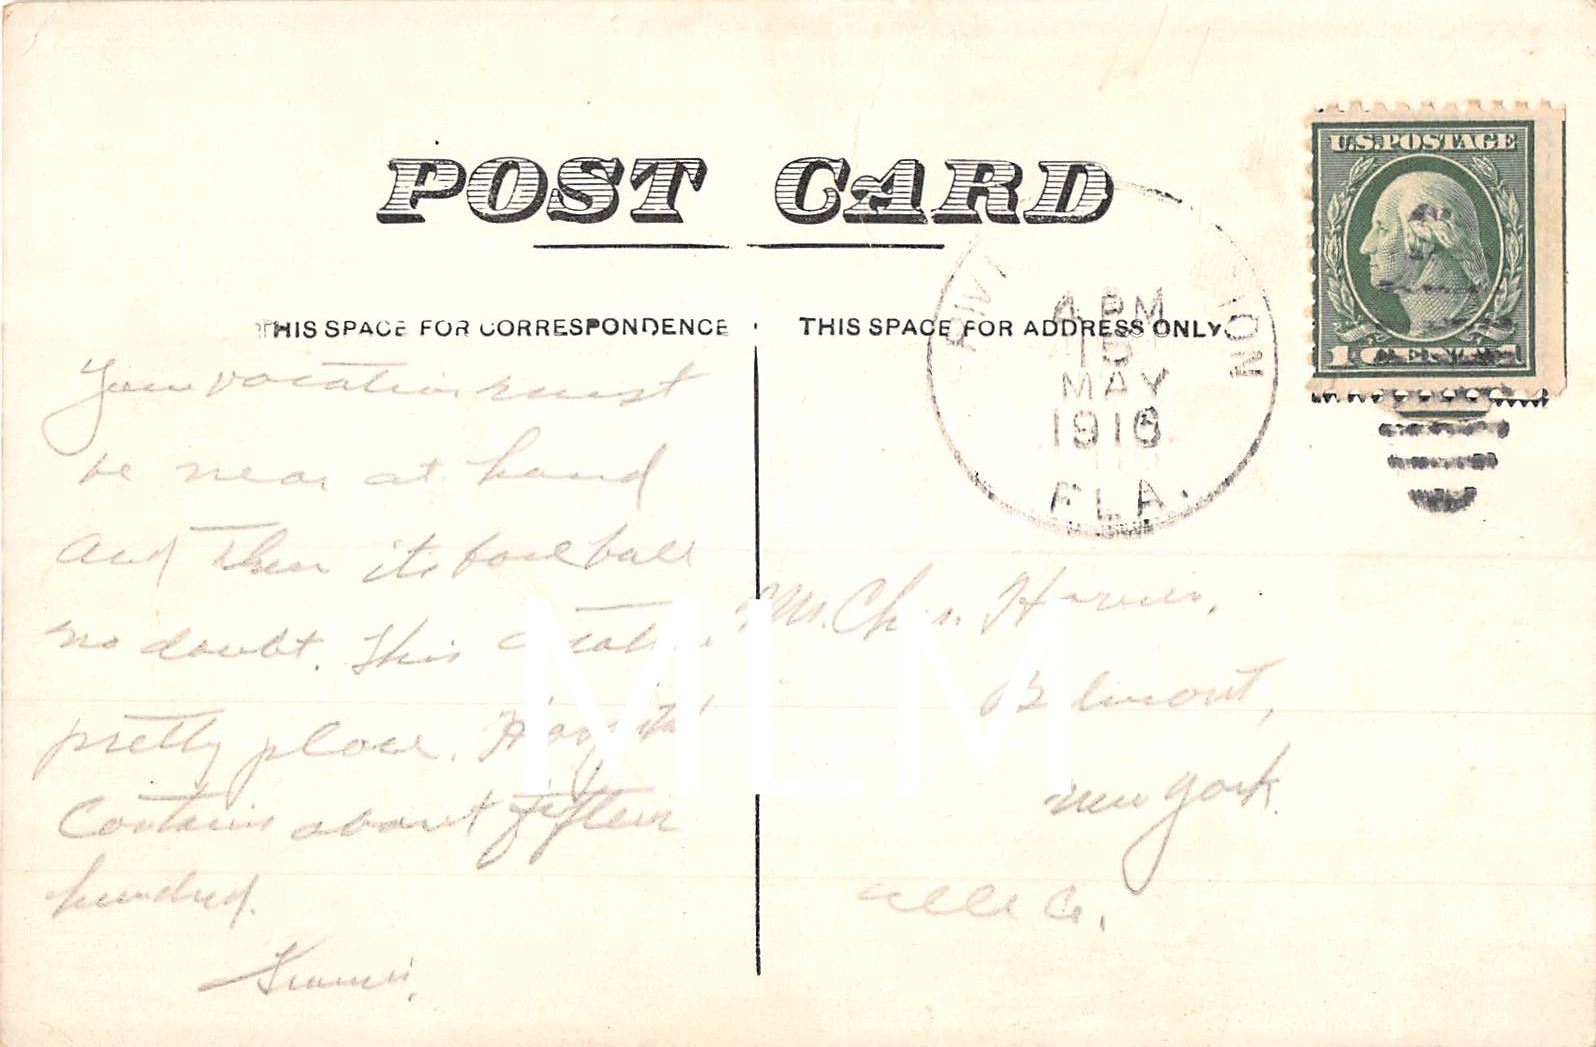 POST CARD
THIS SPACE FOR CORRESPONDENCE
THIS SPACE FOR ADDRESS ONLY.
U.S. POSTAGE
1 CENT 1
4 PM
15
MAY
1916
FLA.
Your vacation must
be near at hand
and then its base ball
no doubt. This
pretty place. Hospital
Contains about fifteen
hundred.
Mr. Chas. Harvew.
Belmont,
New York.
Alle Co.
MLM